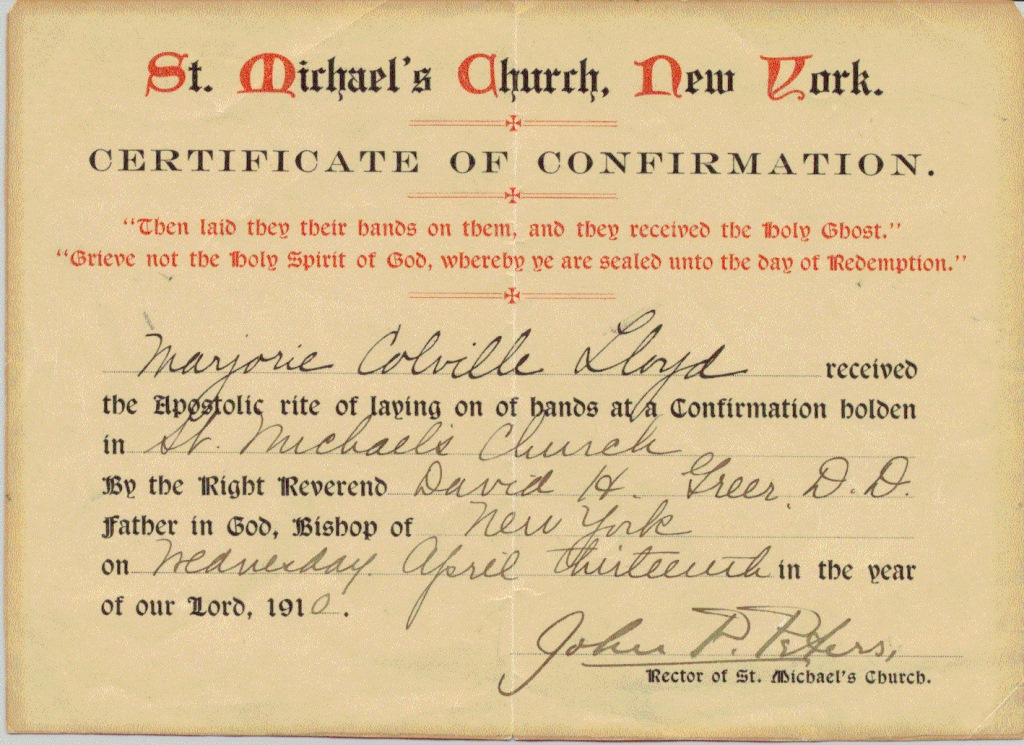 St. Michael's Church, New York.
CERTIFICATE OF CONFIRMATION.
"Then laid they their hands on them, and they received the Holy Ghost."
"Grieve not the Holy Spirit of God, whereby ye are sealed unto the day of Redemption."
Marjorie Colville Lloyd received
the Apostolic rite of laying on of hands at a Confirmation holden
in St. Michael's Church
By the Right Reverend David H. Greer, D.D.
Father in God, Bishop of New York
on Wednesday April thirteenth in the year
of our Lord, 1910.
John P. Peters,
Rector of St. Michael's Church.